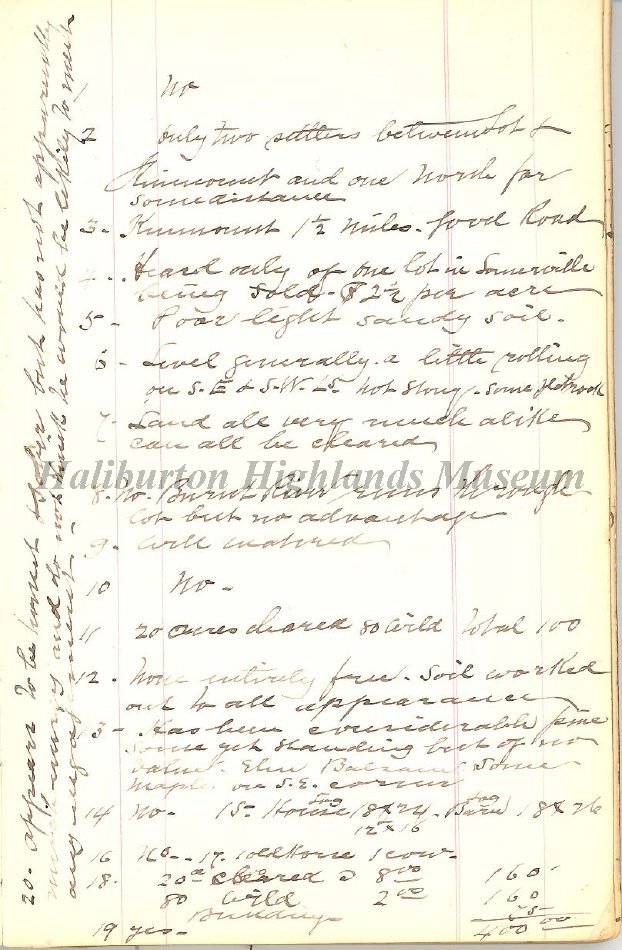 No
2 Only two settlers between lot &
Kinmount and one North for
some distance
3 - Kinmount 1 1/2 miles - Good Road
4 - Heard only of one lot in Somerville
being sold - $2 1/2 per acre
5 - Poor light sandy soil -
6 - Level generally - a little rolling
on S.E. & S.W. - not stony - some flat rock
7 - Land all very much alike
can all be cleared
Haliburton Highlands Museum
8 - No. Burnt River runs through
lot but no advantage
9 - Well watered
10 No -
11 20 acres cleared 80 Wild Total 100
12 - None entirely free - Soil worked
out to all appearance
13 - Has been considerable pine
some yet standing but of no
value. Elm Balsam some
Maple on S.E. corner
14 No - 15 - House Log 18 x 24 - Barn Log 18 x 26
12 x 16
16 No - 17 - 1 old Horse 1 cow -
18 - 20 a cleared @ 8 00 160 -
80 Wild 2 00 160
Buildings 75 -
400 00
19 yes -
20 - Appears to be honest & sober but has not apparently
much energy and do not think he would be likely to meet
any engagement -